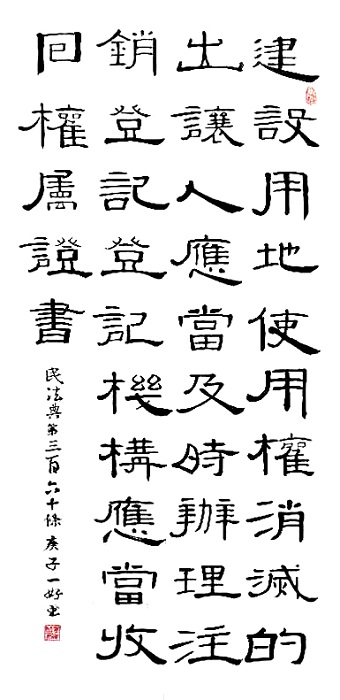 建設用地使用權消滅的
出讓人應當及時辦理注
銷登記登記機構應當收
回權属證書
民法典第三百六十條 庚子一好书